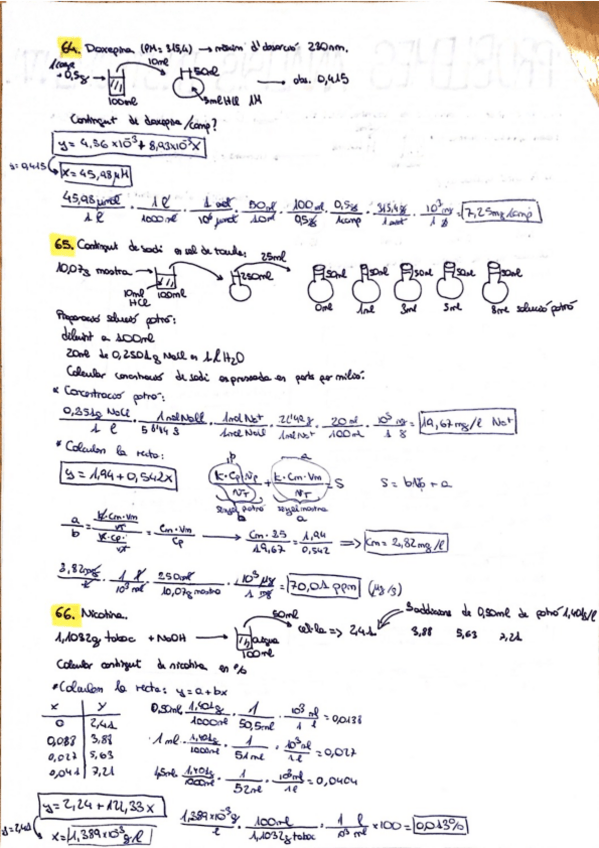 64. Doxepina (PM= 315,4) → màxim d'absorció 230nm.
1comp
→ 0,5g
10ml
50ml
→ abs. 0,415
100ml
3ml HCl 1M
Contingut de doxepina /comp?
y = 4,56 x10⁻³ + 8,93x10⁻³x
y=0,415
x = 45,98 µM
45,98 µmol / 1 l · 1 l / 1000 ml · 1 mol / 10⁶ µmol · 50 ml / 10 ml · 100 ml / 0,5g · 0,5g / 1comp · 315,4g / 1 mol · 10³ mg / 1 g = 7,25mg/comp
65. Contingut de sodi en sal de taula:
25ml
10,07g mostra →
10ml HCl
100ml
250ml
50ml 50ml 50ml 50ml 50ml
0ml 1ml 3ml 5ml 8ml solució patró
Preparació solució patró:
diluint a 100ml
20ml de 0,2501g NaCl en 1 l H₂O
Calcular concentració de sodi expressada en parts per milió.
* Concentració patró:
1 l · 1mol NaCl · 1mol Na⁺ / 1mol NaCl · 1mol Na⁺ · 20 ml / 100 ml · 10³ mg / 1 g = 19,67mg/l Na⁺
* Calculem la recta:
y = 1,94 + 0,542x
b a
K·Cp·Vp + K·Cm·Vm / VT = S
S = bVp + a
senyal patró senyal mostra
b a
a/b = K·Cm·Vm / VT / K·Cp / VT = Cm·Vm / Cp → Cm·25 / 19,67 = 1,94 / 0,542 ⇒ Cm = 2,82mg/l
1 l / 10³ ml · 250ml / 10,07g mostra · 10³ µg / 1 mg = 70,01 ppm (µg/g)
66. Nicotina.
50ml
3 addicions de 0,50ml de patró 1,401g/l
1,1032g tabac + NaOH →
aigua
100ml
cel·la ⇒ 2,41
3,88 5,63 7,21
Calcular contingut de nicotina en %
* Calculem la recta: y = a + bx
x y
0 2,41
3,88
0,027 5,63
0,041 7,21
0,50ml 1,401g / 1000ml · 1 / 50,5ml · 10³ ml / 1 l = 0,0138
1 ml · 1,401g / 1000ml · 1 / 51ml · 10³ ml / 1 l = 0,027
1,5ml · 1,401g / 1000ml · 1 / 52ml · 10³ ml / 1 l = 0,0404
y = 2,24 + 122,33 x
x = 1,389x10⁻³ g/l
1,389x10⁻³g / l · 100ml / 1,1032g tabac · 1 l / 10³ ml x100 = 0,013%